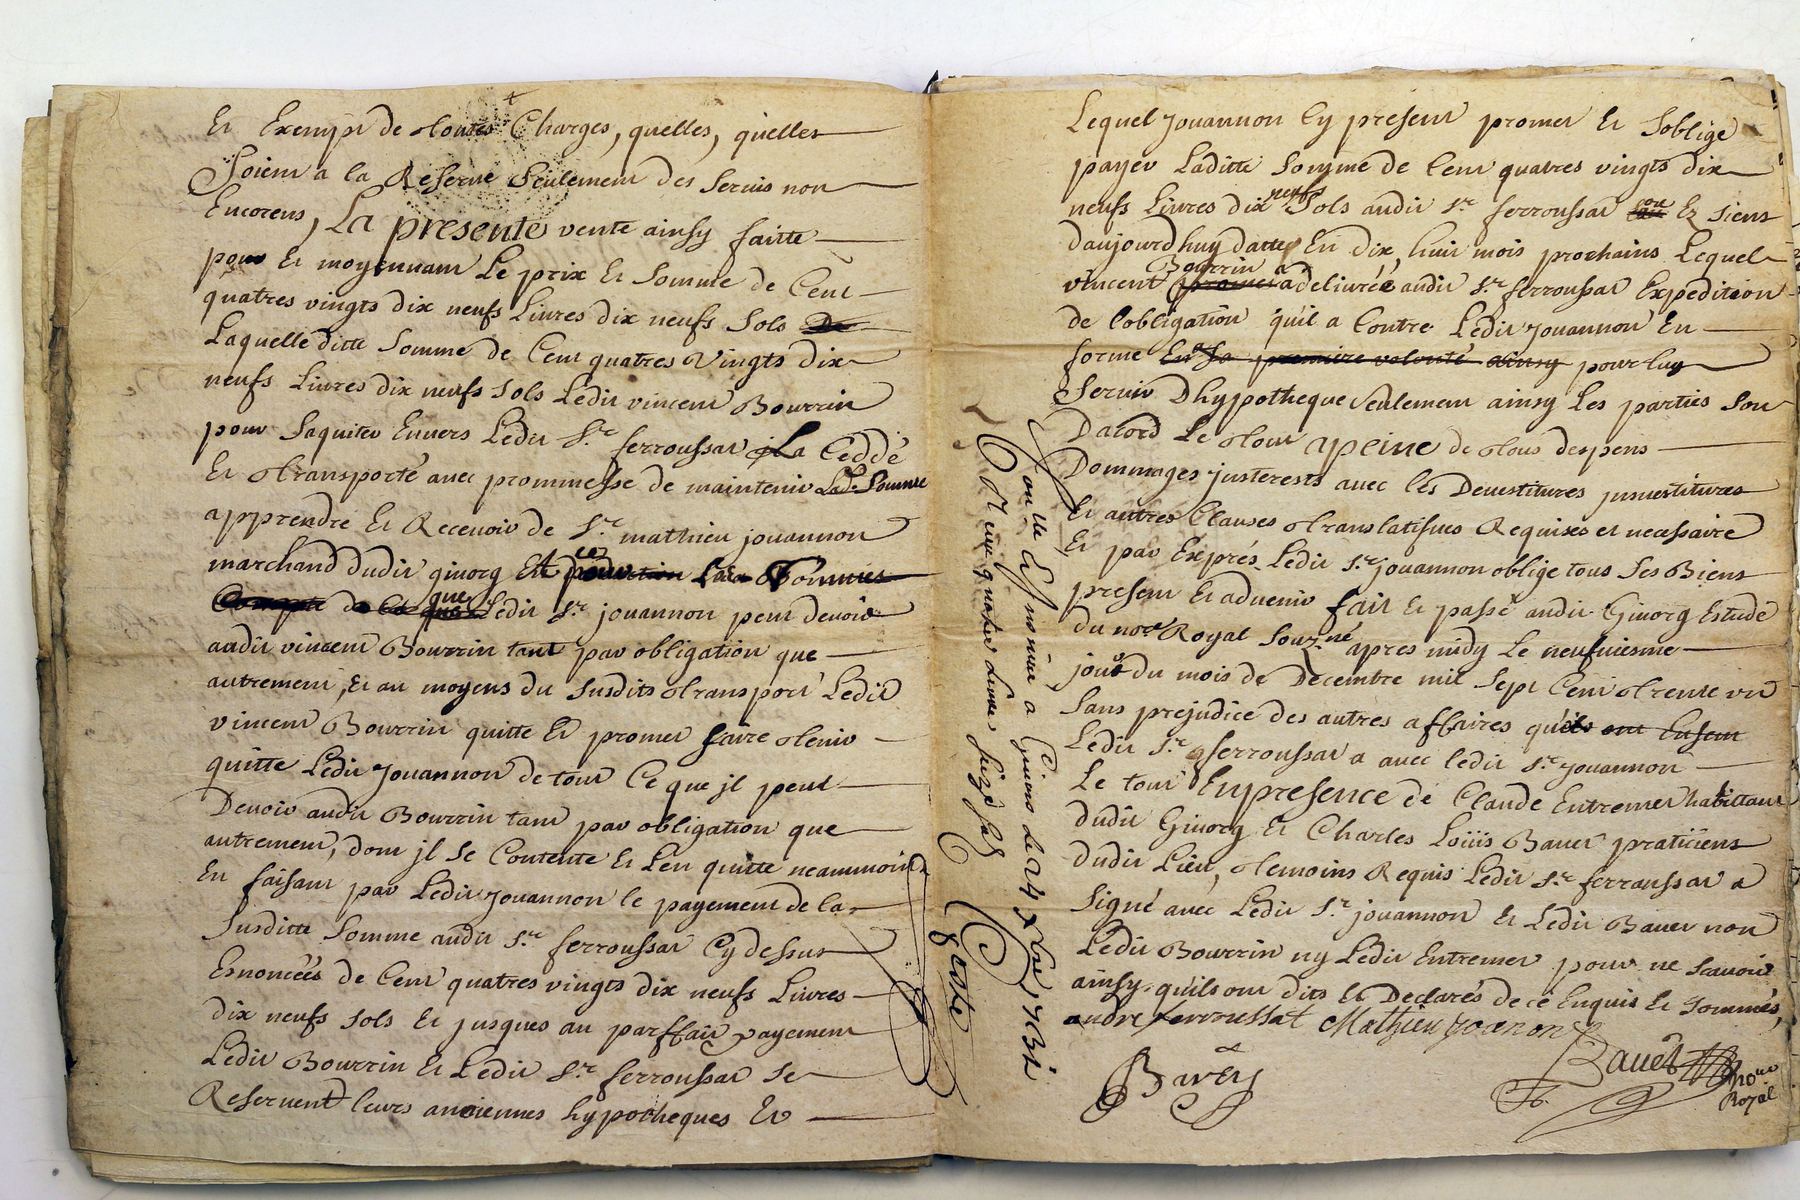 Et Exempt de toutes Charges, quelles, quelles
Soient a la Reserve Seulement des Servis non
Encorens, La presente vente ainsy faitte
pour et moyennant Le prix et Somme de Cent
quatres vingts dix neufs Livres dix neufs Sols De
Laquelle ditte Somme de Cent quatres Vingts dix
neufs Livres dix neufs Sols Ledit vincent Bourrin
pour Saquiter Envers Ledit Sr. ferroussat jLa Ceddé
Et transporté avec prommesse de maintenir Lad. Somme
apprendre Et Recevoir de Sr. mathieu jouannon
marchand dudit givorg Et ce
que Ledit Sr. jouannon peut devoir
audit vincent Bourrin tant par obligation que
autrement, Et au moyens du Susdits transport Ledit
vincent Bourrin quitte Et promet faire tenir
quitte Ledit Jouannon de tout Ce que jl peut
Devoir audit Bourrin tant par obligation que
autrement, dont jl Se Contente Et Len quitte neammoins
En faisant par Ledit Jouannon le payement de la
Susditte Somme audit Sr. ferroussat Cy dessus
Esnoncées de Cent quatres vingts dix neufs Livres
dix neufs Sols Et jusques au parffait payement
Ledit Bourrin Et Ledit Sr. ferroussat Se
Reservent leurs anciennes hypotheques Et
Lequel Jouannon Cy present promet Et Soblige
payer Laditte Somme de Cent quatres vingts dix
neufs Livres dix neufs Sols audit Sr. ferroussat Ez Siens
daujourdhuy datte En dix huit mois prochains Lequel
vincent Bourrin a delivrée audit Sr. ferroussat Expedition
de Lobligation quil a Contre Ledit Jouannon En
forme En Sa premiere volonté ainsy pour luy
Servir Dhypotheque Seulement ainsy Les parties Son
Dacord Le tout apeine de tous despens
Dommages jnterests avec les Devestitures jnvestitures
Et autres Clauses translatifves Requises et necessaire
Et par Exprés Ledit Sr. jouannon oblige tous Ses Biens
present Et advenir fait Et passé audit Givorg Estude
du nore Royal Souz.né apres midy Le neufviesme
jour du mois de Decembre mil Sept Cent trente un
Sans prejudice des autres affaires qu'ils ont Ensem
Ledit Sr. ferroussat a avec ledit Sr. Jouannon
Le tout Enpresence de Claude Entremet habittant
dudit Givorg Et Charles Loüis Bavet praticiens
dudit Lieu, temoins Requis Ledit Sr. ferroussat a
Signé avec Ledit Sr. jouannon Et Ledit Bavet non
Ledit Bourrin ny Ledit Entremet pour ne Scavoir
ainsy quils ont dits Et Declarés de ce Enquis Et Sommés,
andre ferroussat Mathieu Joanon
Bavet
Baréy
nore
Royal
Con.lle a Givors le 24 Xbre 1731
quatre Livres Seize Sols